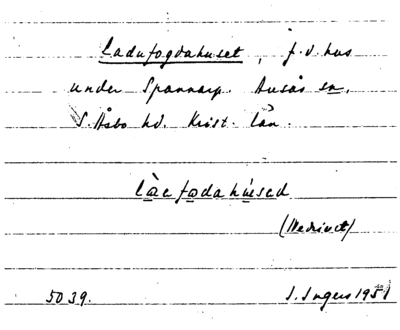 Ladufogdahuset, f.d. hus
under Spannarp. Ausås sn,
S. Åsbo hd. Krist. län.
làe fødahúsed
(Nedrivet)
5039. I. Ingers 1951